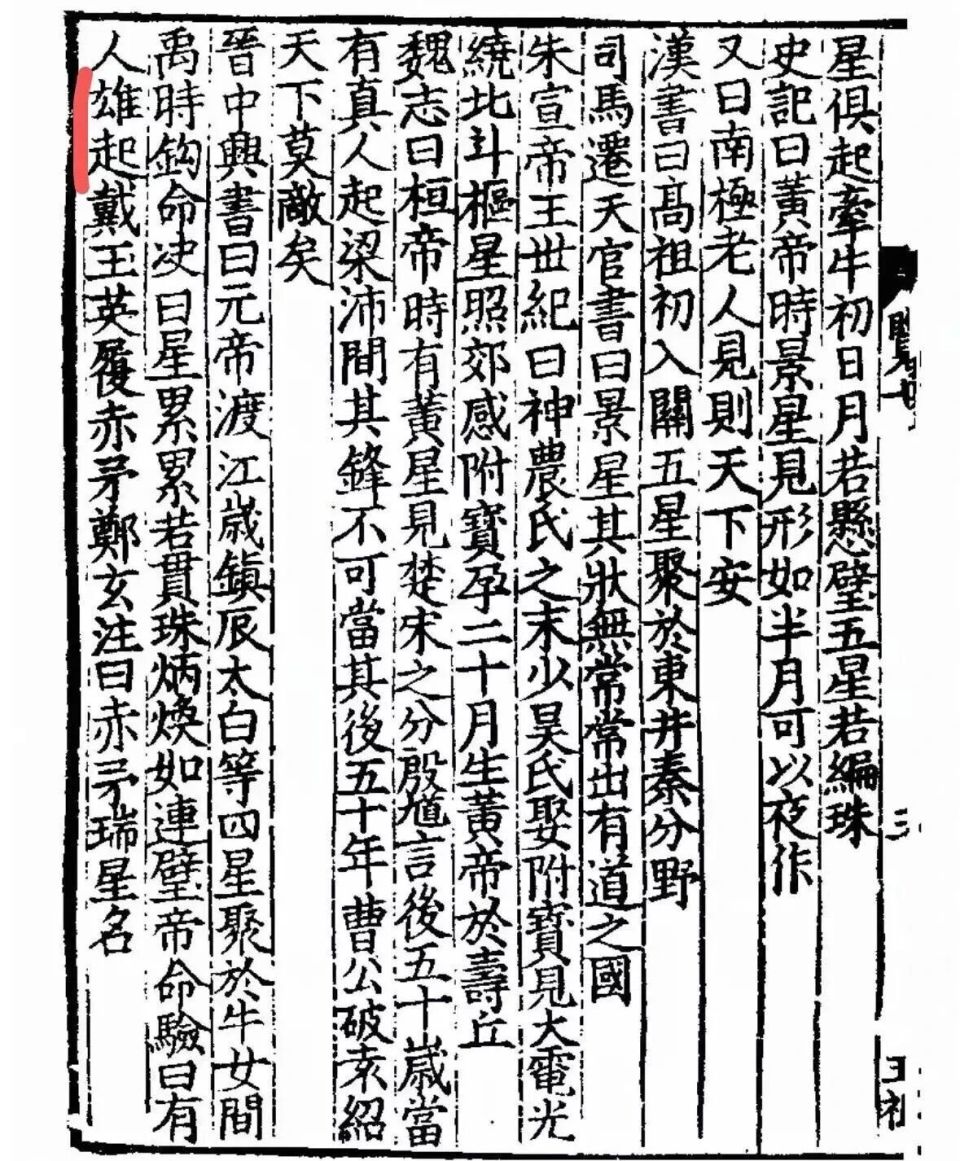 覽七
三
王祖
星俱起牽牛初日月若懸璧五星若編珠
史記曰黃帝時景星見形如半月可以夜作
又曰南極老人見則天下安
漢書曰髙祖初入關五星聚於東井秦分野
司馬遷天官書曰景星其狀無常常出有道之國
朱宣帝王世紀曰神農氏之末少昊氏娶附寶見大電光
繞北斗樞星照郊感附寶孕二十月生黃帝於壽丘
魏志曰桓帝時有黃星見楚宋之分殷馗言後五十歲當
有真人起梁沛間其鋒不可當其後五十年曹公破袁紹
天下莫敵矣
晉中興書曰元帝渡江歲鎮辰太白等四星聚於牛女間
禹時鈎命决曰星累累若貫珠炳煥如連璧帝命驗曰有
人雄起戴玉英履赤矛鄭玄注曰赤矛瑞星名